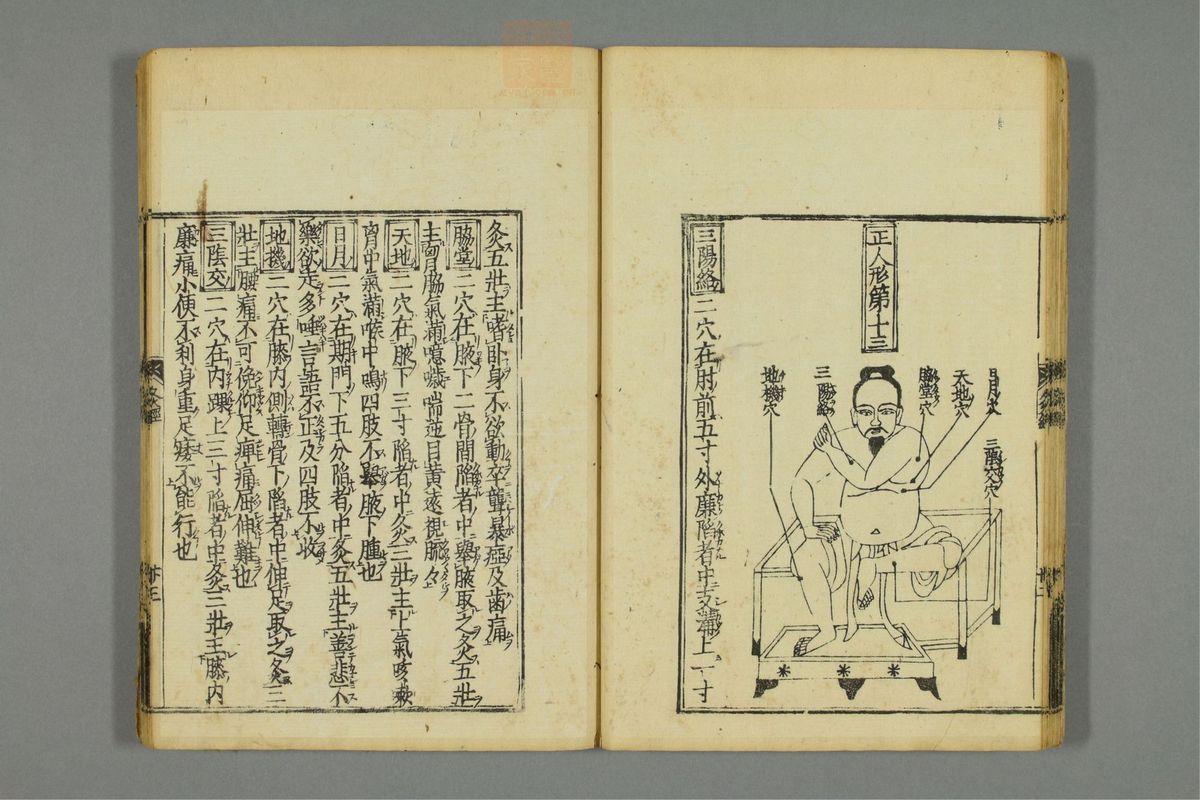 正人形第十三
日月穴
天地穴
脇堂穴
三陽絡
地機穴
三陰交穴
三陽絡 二穴在肘前五寸外廉陷者中支溝上一寸
灸五壯主嗜卧身不欲動卒聾暴瘂及齒痛
脇堂 二穴在腋下二骨間陷者中舉腋取之灸五壯
主胷脇氣滿噫噦喘逆目黃遠視𥆨々
天地 二穴在腋下三寸陷者中灸三壯主上氣咳嗽
胷中氣滿喉中鳴四肢不舉腋下腫也
日月 二穴在期門下五分陷者中灸五壯主善悲不
樂欲走多唾言語不正及四肢不收
地機 二穴在膝内側轉骨下陷者中伸足取之灸三
壯主腰痛不可俛仰足痺痛屈伸難也
三陰交 二穴在内踝上三寸陷者中灸三壯主膝内
廉痛小便不利身重足痿不能行也
灸經
廿三